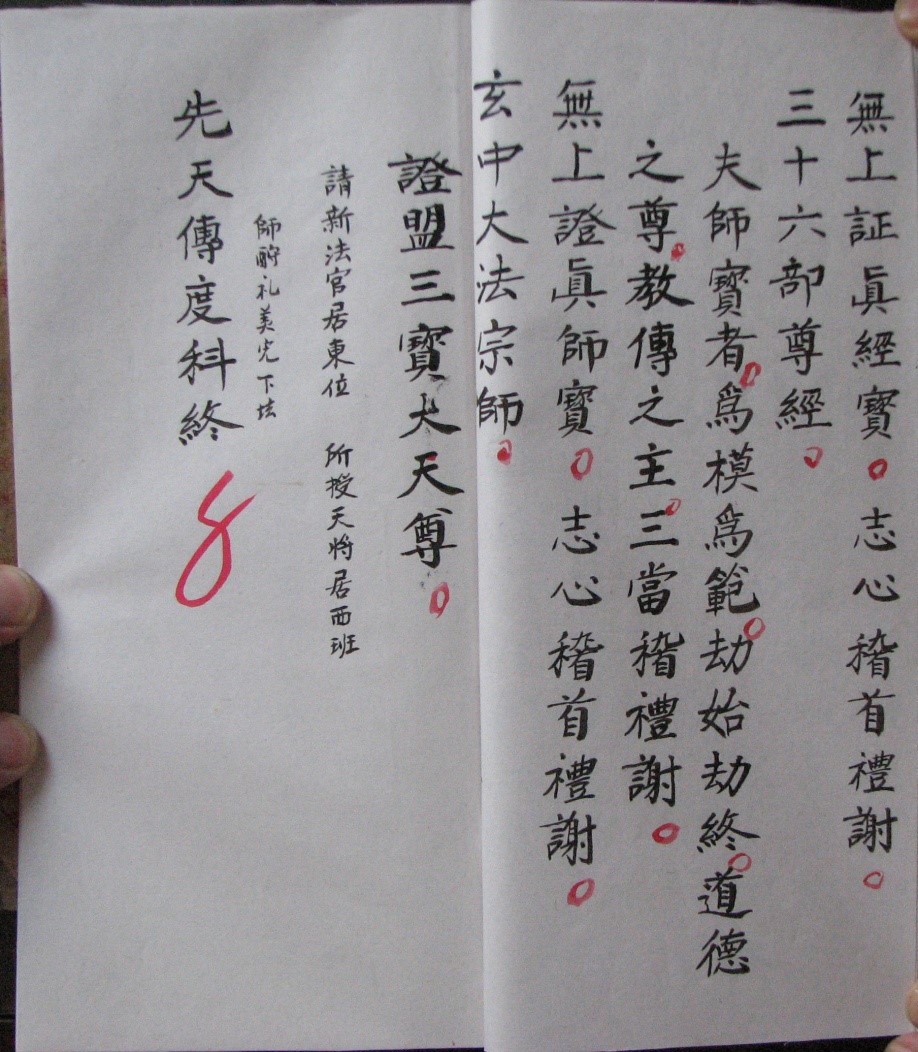 無上証眞經寶。志心稽首禮謝。
三十六部尊經。
夫師寶者。爲模爲範。劫始劫終。道德
之尊。教傳之主。三當稽禮謝。
無上證眞師寶。志心稽首禮謝。
玄中大法宗師。
證盟三寶大天尊。
請新法官居東位 所授天将居西班
師酧礼美完下坛
先天傳度科終